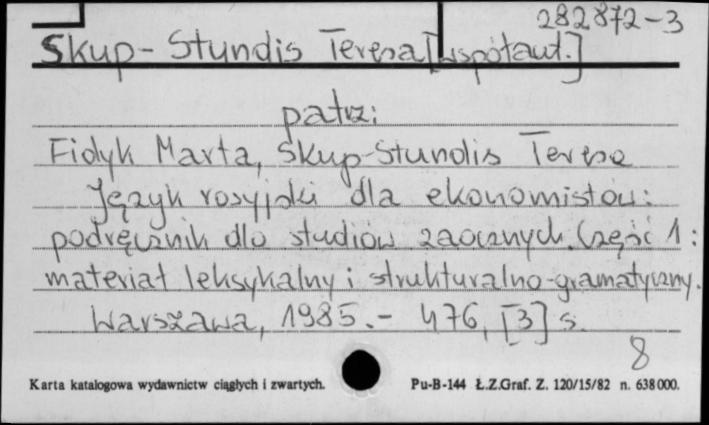 282872-3
Skup-Stundis Teresa [współaut.]
patrz:
Fidyk Marta, Skup-Stundis Teresa
Język rosyjski dla ekonomistów:
podręcznik dla studiów zaocznych. Część 1:
materiał leksykalny i strukturalno-gramatyczny.
Warszawa, 1985.- 476, [3] s.
8
Karta katalogowa wydawnictw ciągłych i zwartych. Pu-B-144 Ł.Z.Graf. Z. 120/15/82 n. 638000.